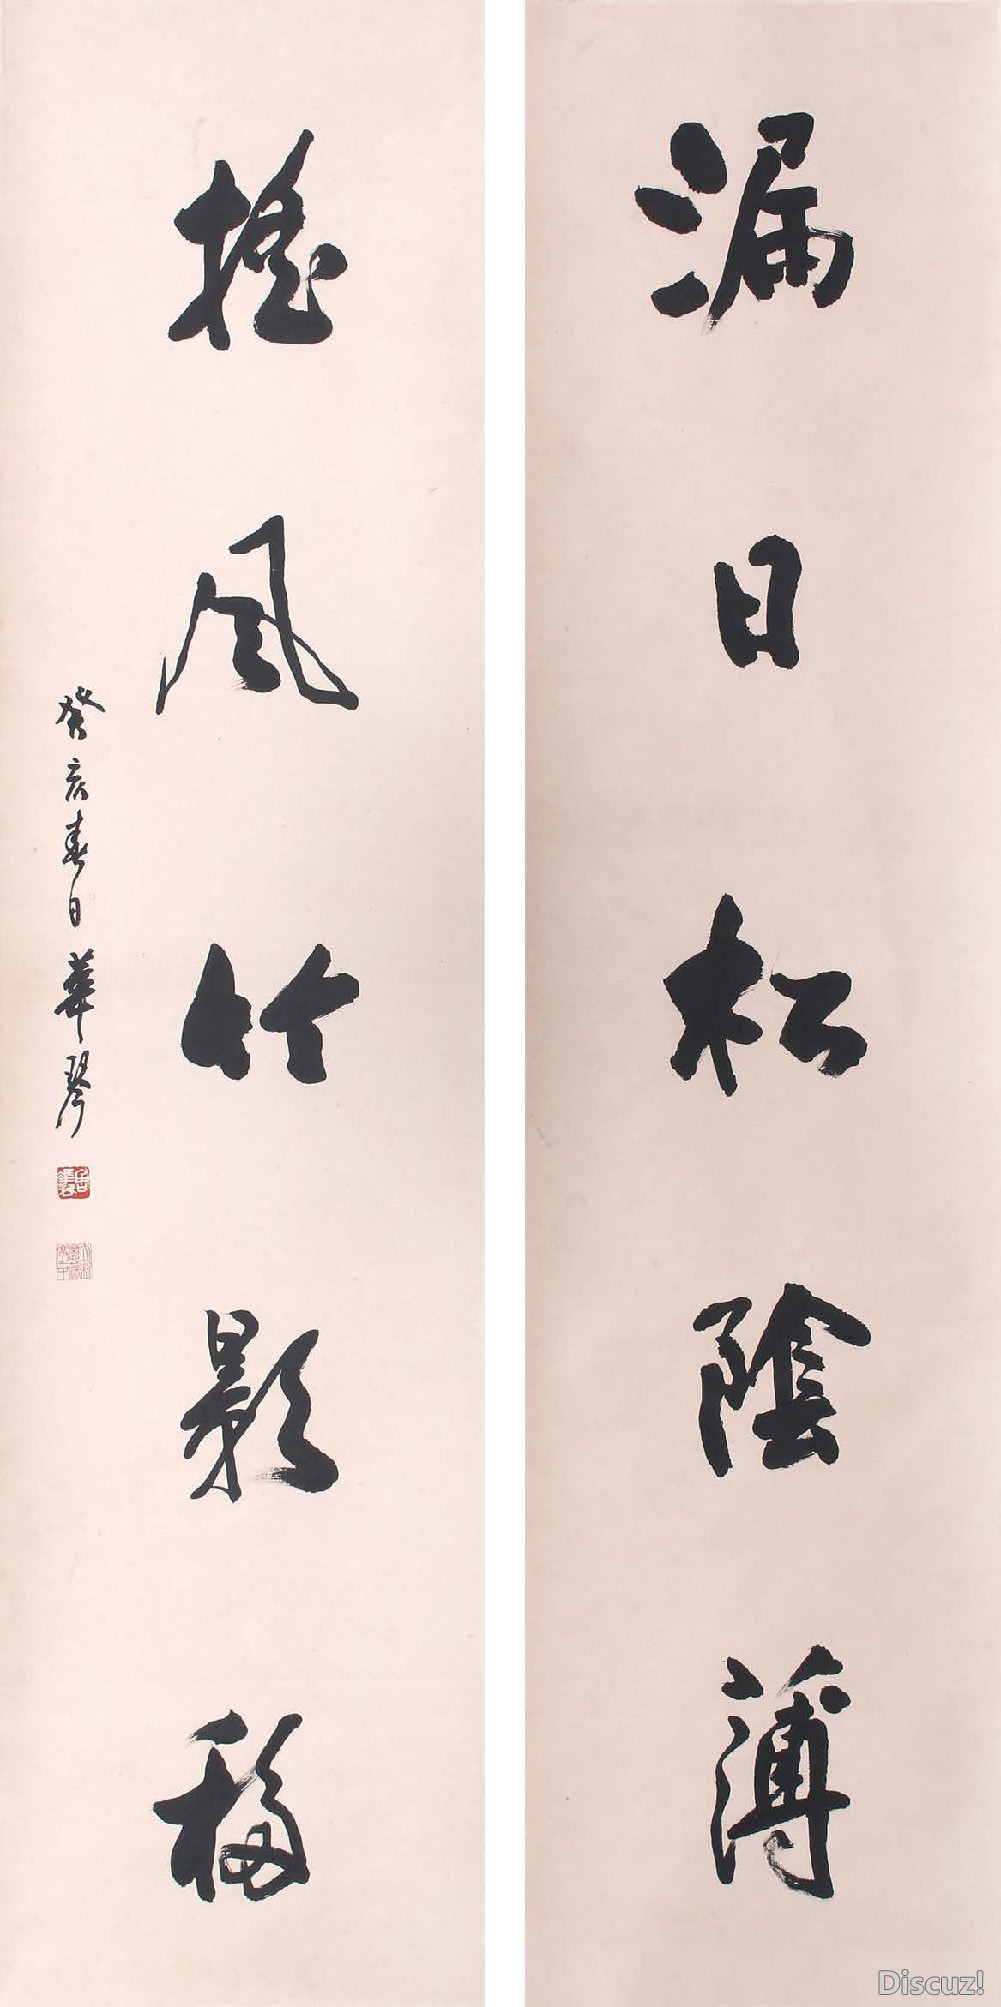 漏日松陰薄
搖風竹影移
癸亥春日華琴
Discuz!